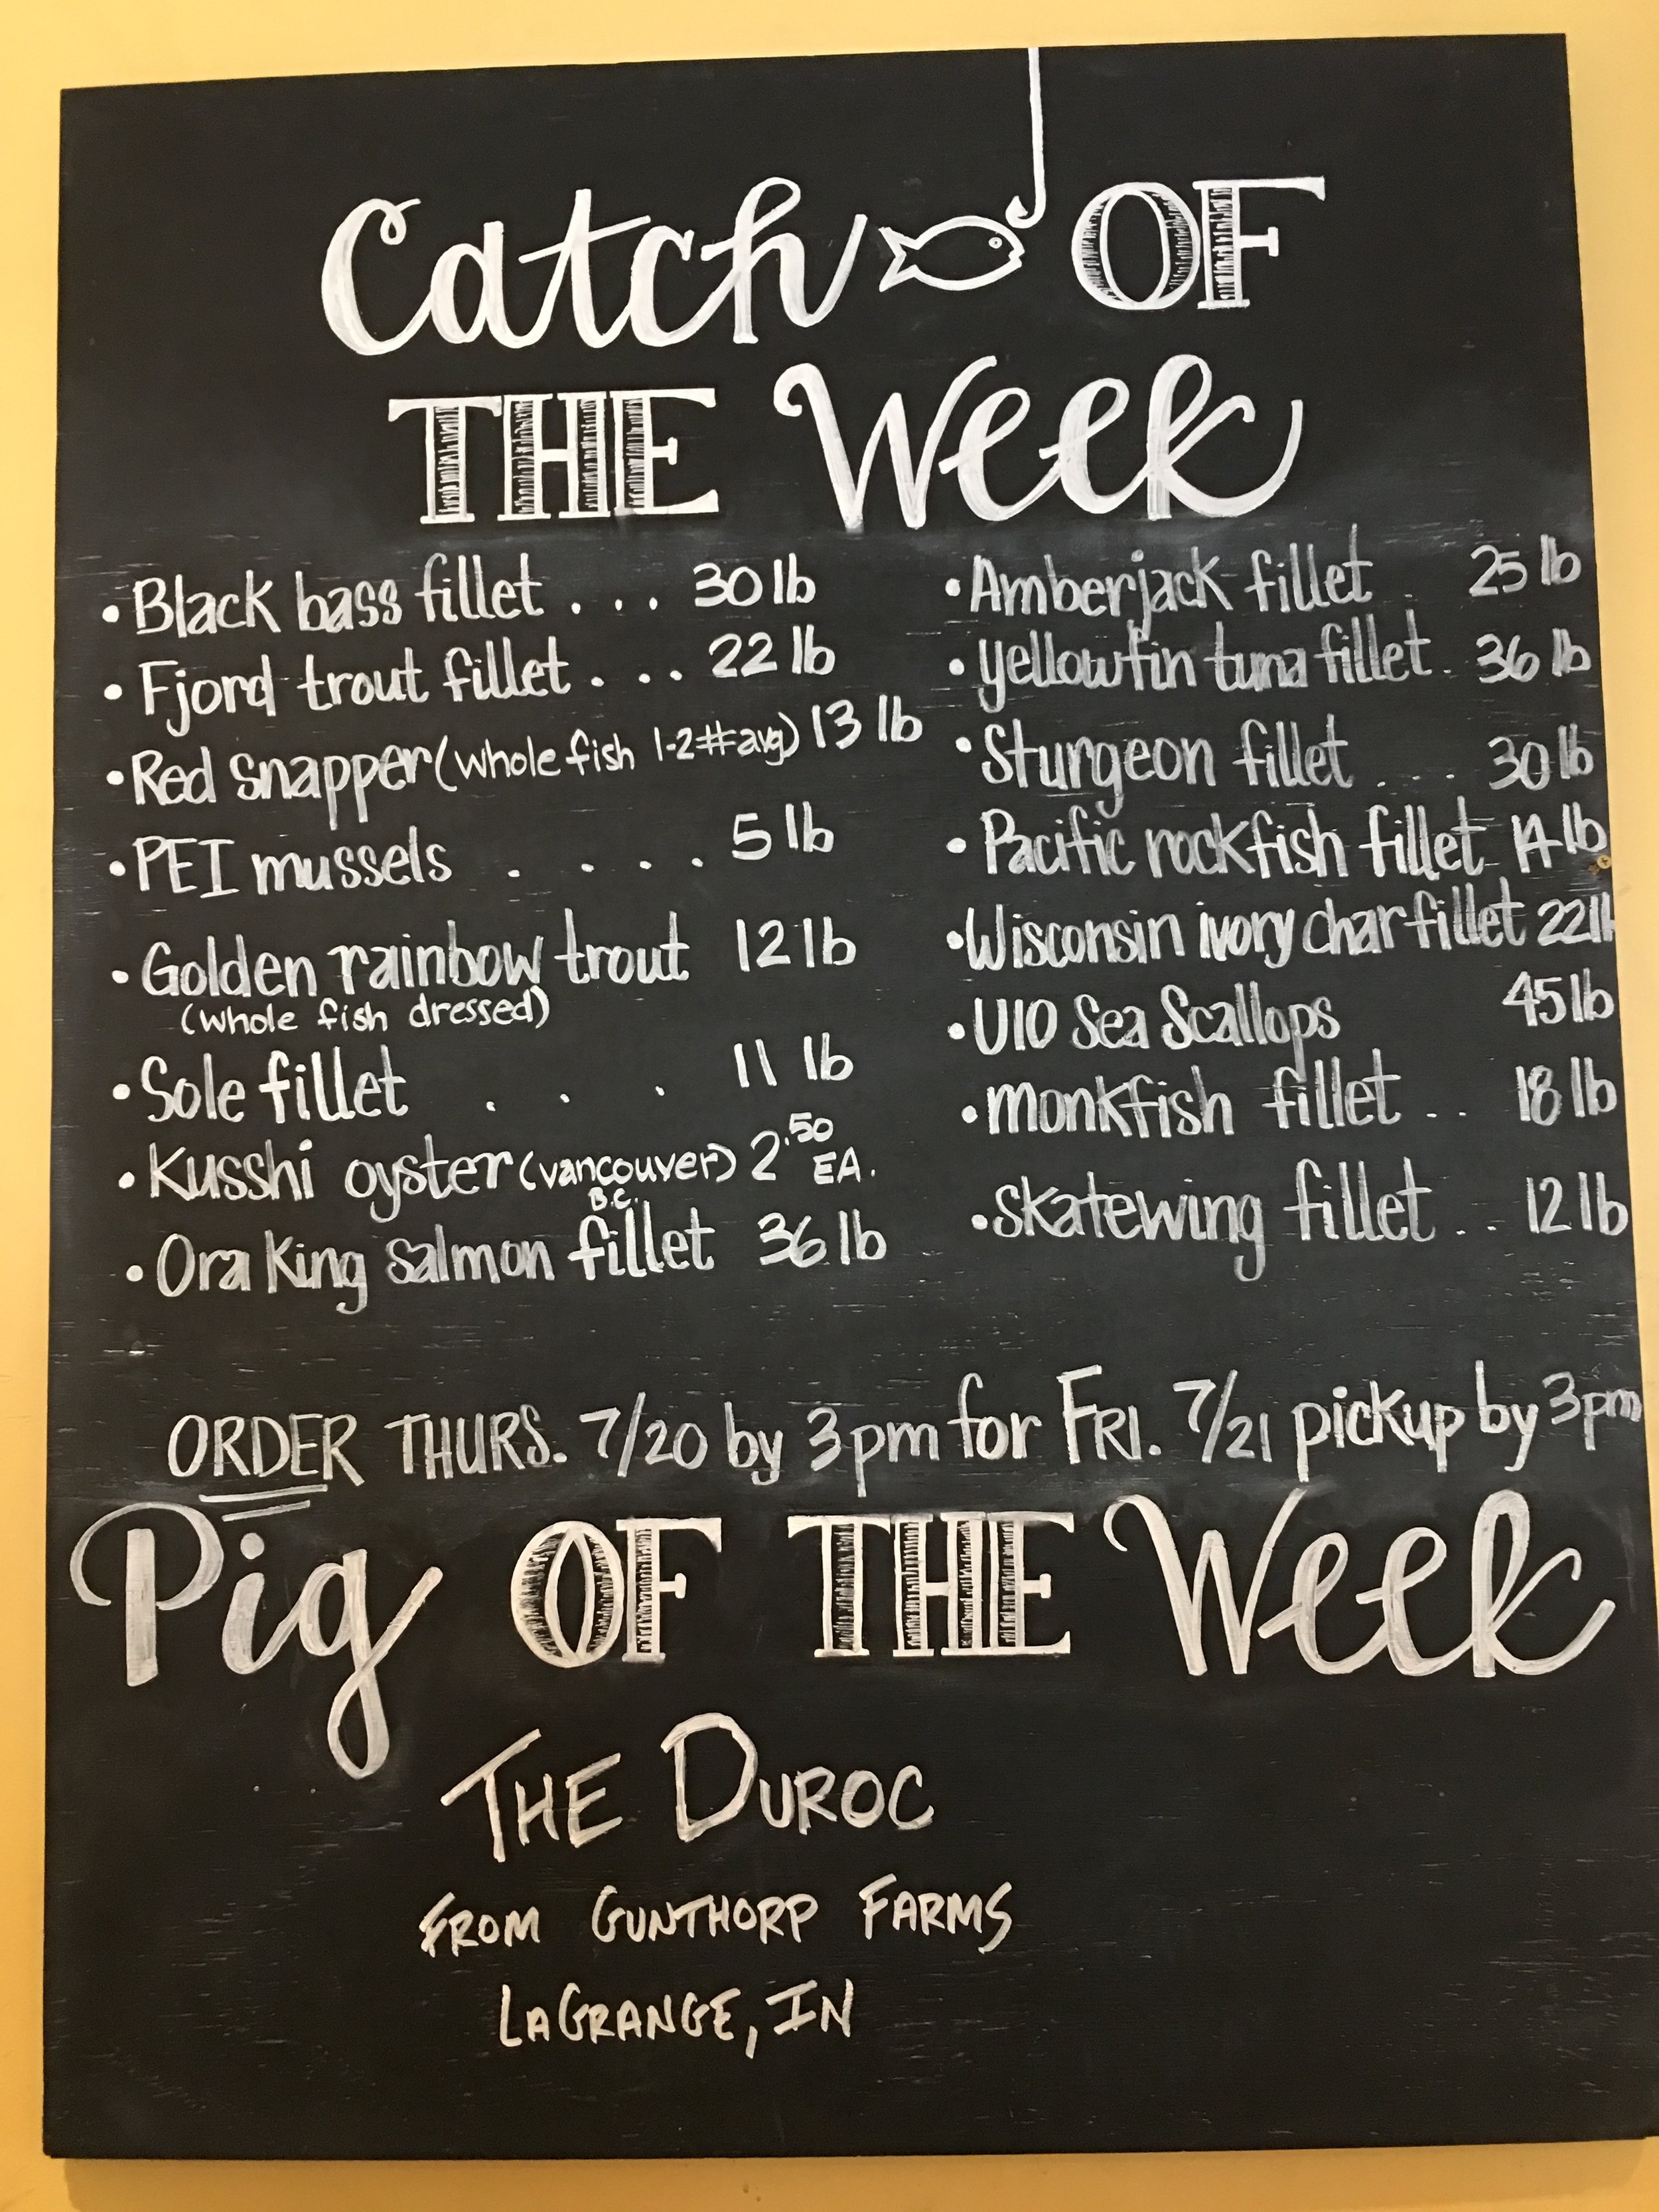 Catch OF
THE Week
• Black bass fillet . . . 30 lb
• Fjord trout fillet . . . 22 lb
• Red snapper (whole fish 1-2# avg) 13 lb
• PEI mussels . . . . 5 lb
• Golden rainbow trout 12 lb
(whole fish dressed)
• Sole fillet . . . 11 lb
• Kusshi oyster (vancouver) 2.50 EA.
B.C.
• Ora King salmon fillet 36 lb
• Amberjack fillet . 25 lb
• yellowfin tuna fillet . 36 lb
• Sturgeon fillet . . . 30 lb
• Pacific rockfish fillet 14 lb
• Wisconsin ivory char fillet 22 lb
• U10 Sea Scallops 45 lb
• monkfish fillet . . 18 lb
• skatewing fillet . . 12 lb
ORDER THURS. 7/20 by 3pm for FRI. 7/21 pickup by 3pm
Pig OF THE Week
THE DUROC
FROM GUNTHORP FARMS
LAGRANGE, IN